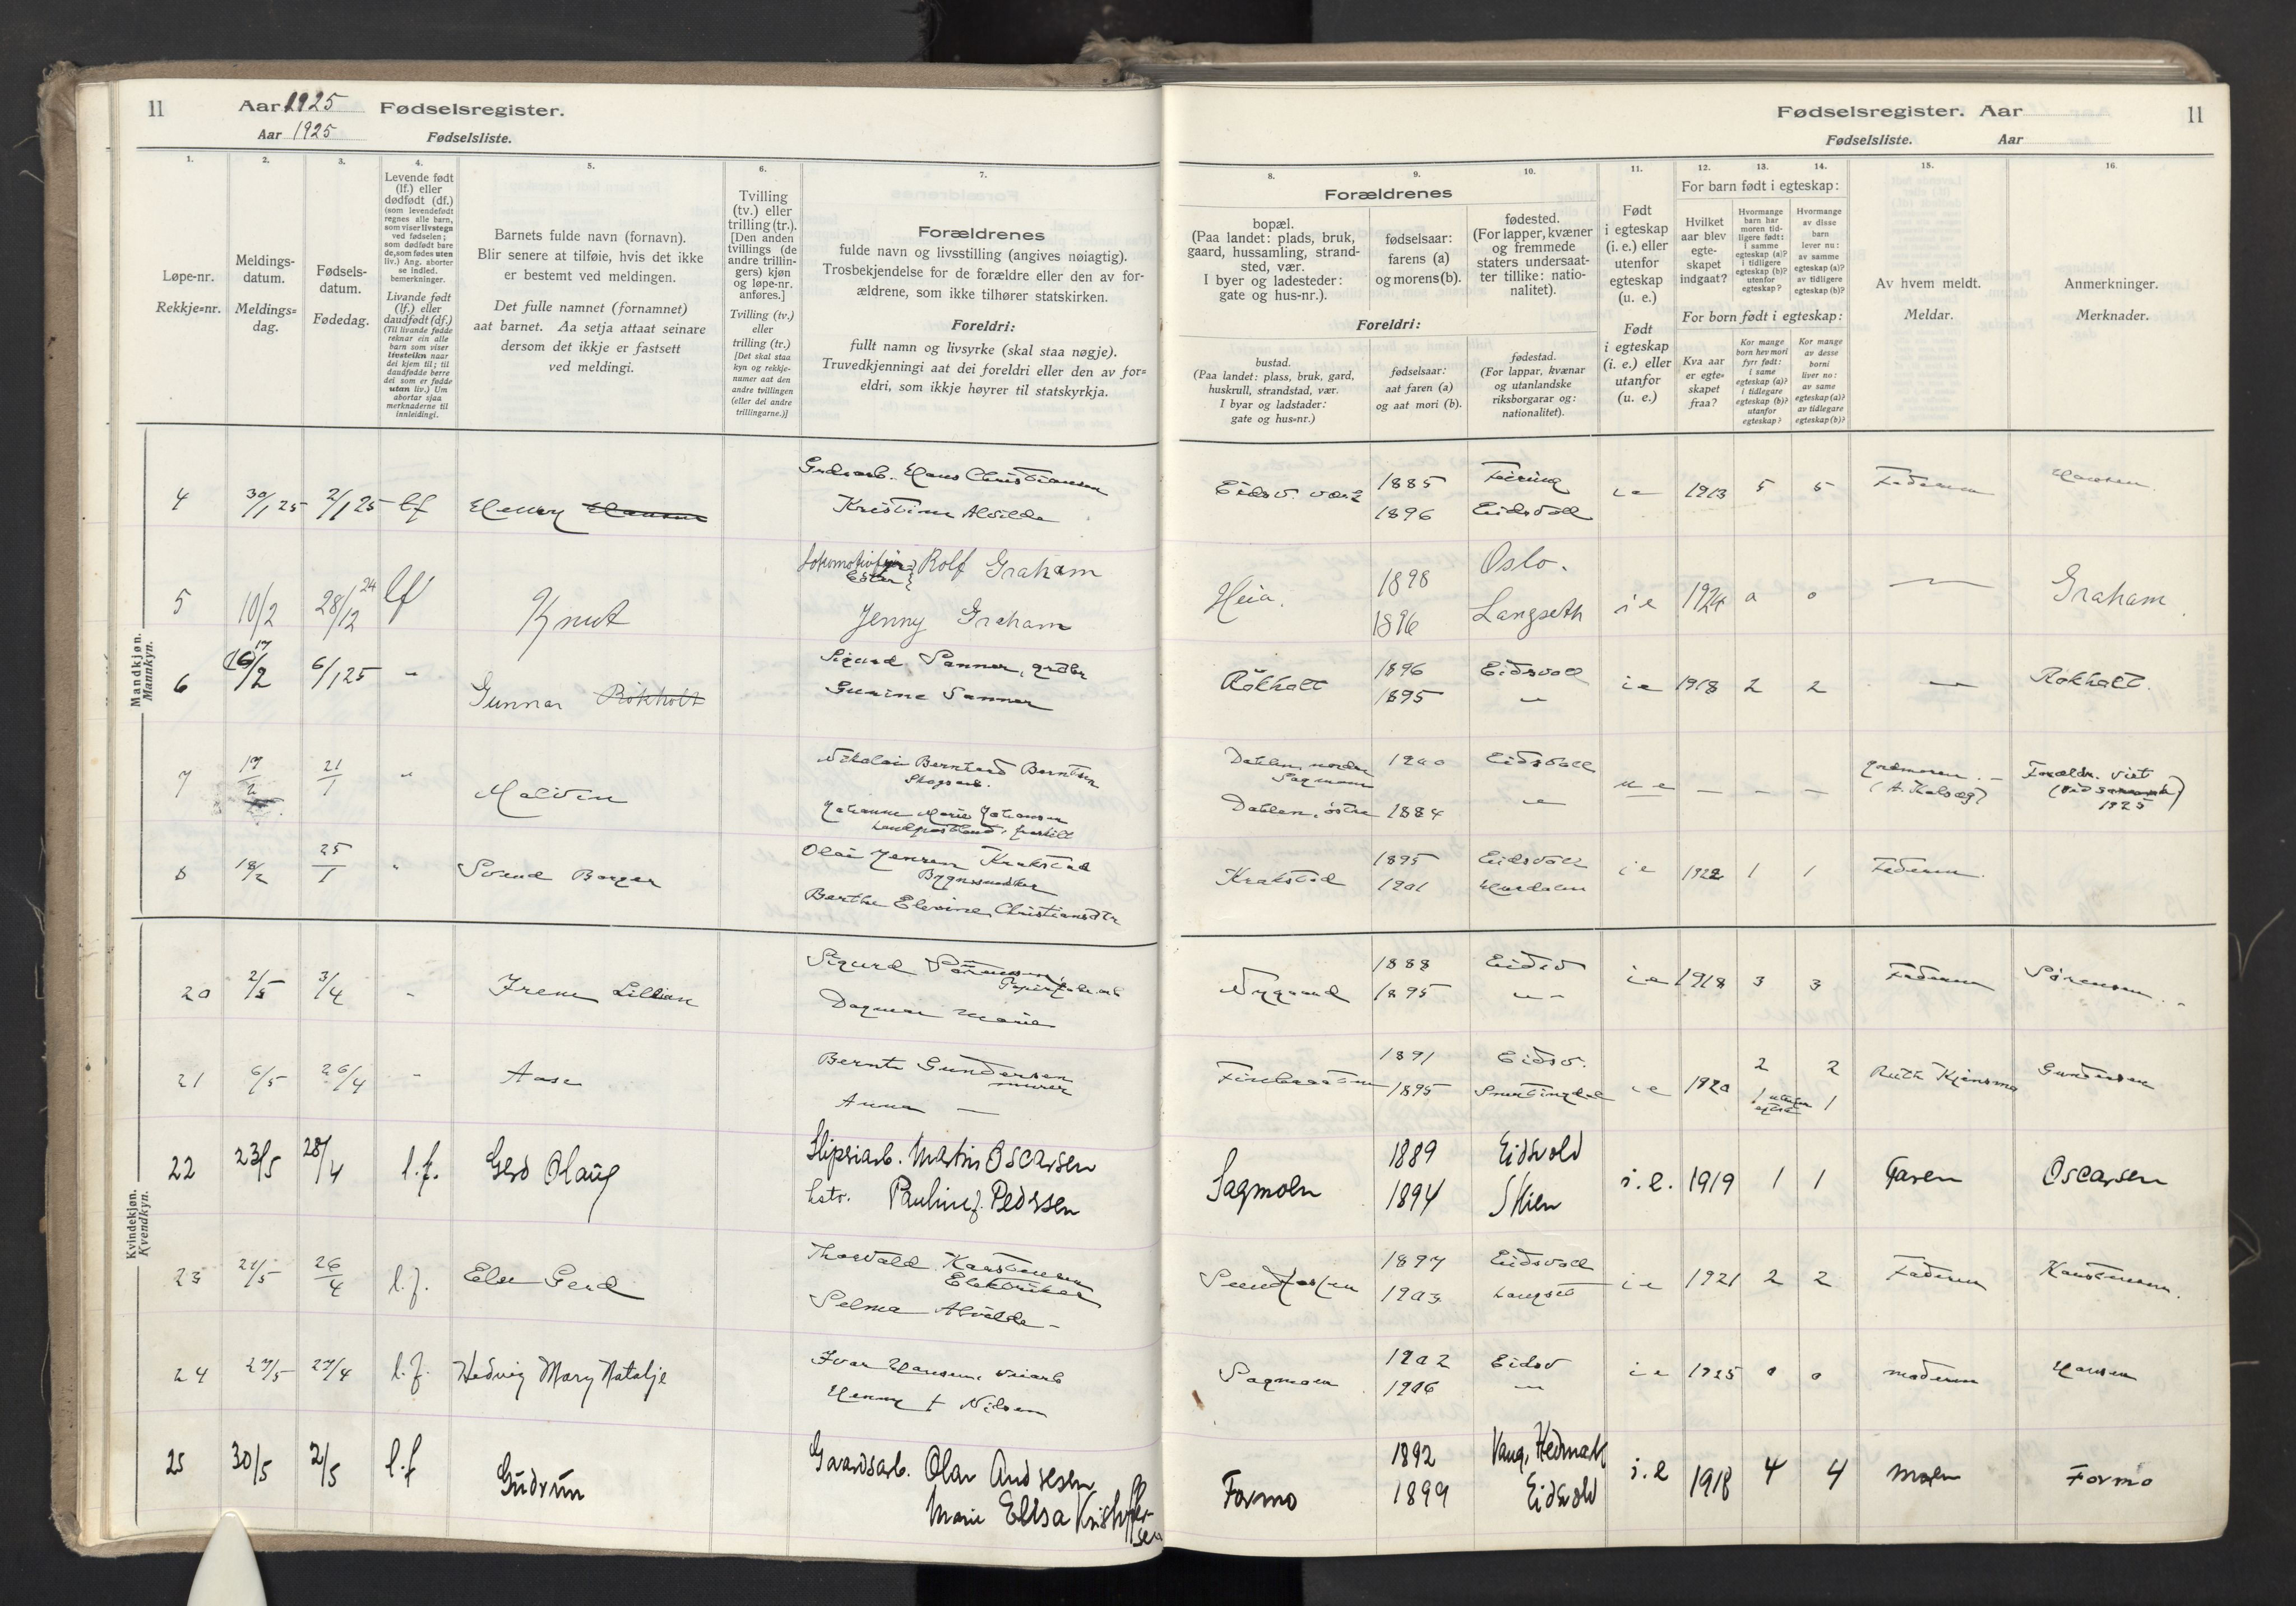 11 Aar 1925 Fødselsregister.
Aar 1925 Fødselsliste.
1. 2. 3. 4. 5. 6. 7.
Løpe-nr.
Rekkje-nr.
Meldings-
datum.
Meldings-
dag.
Fødsels-
datum.
Fødedag.
Levende født
(lf.) eller
dødfødt (df.)
(som levendefødt
regnes alle barn,
som viser livstegn
ved fødselen;
som dødfødt bare
de, som fødes uten
liv.) Ang. aborter
se indled.
bemerkninger.
Livande født
(lf.) eller
daudfødt (df.)
(Til livande fødde
reknar ein alle
barn som viser
livsteikn naar
dei kjem til; til
daudfødde berre
dei som er fødde
utan liv.) Um
abortar sjaa
merknaderne til
innleidingi.
Barnets fulde navn (fornavn).
Blir senere at tilføie, hvis det ikke
er bestemt ved meldingen.
Det fulle namnet (fornamnet)
aat barnet. Aa setja attaat seinare
dersom det ikkje er fastsett
ved meldingi.
Tvilling
(tv.) eller
trilling (tr.).
[Den anden
tvillings (de
andre trillin-
gers) kjøn
og løpe-nr.
anføres.]
Tvilling (tv.)
eller
trilling (tr.)
[Det skal staa
kyn og rekkje-
numer aat den
andre tvillingen
(eller dei andre
trillingarne.)]
Forældrenes
fulde navn og livsstilling (angives nøiagtig).
Trosbekjendelse for de forældre eller den av for-
ældrene, som ikke tilhører statskirken.
Foreldri:
fullt namn og livsyrke (skal staa nøgje).
Truvedkjenningi aat dei foreldri eller den av for-
eldri, som ikkje høyrer til statskyrkja.
Mandkjøn.
Mannkyn.
4 30/1 25 2/1 25 lf Henry Hansen
Grdsarb. Hans Christiansen
Kristine Alvilde
5 10/2 28/12 24 lf Knut
Rolf Graham
Jenny Graham
6 17/2 6/1 25 " Gunnar Røkholt
Sigurd Sanner, grdbr
Gunine Sanner
7 17/2 21/1 " Malvin
Nikolai Berntsen
Skogsarb.
Johanne Marie Johansen
8 18/2 25/1 " Svend Borger
Olai Jensen Krakstad
Bygnssnedker
Berthe Elevine Christiansdtr
Kvindekjøn.
Kvendkyn.
20 2/5 3/4 " Irene Lillian
Sigurd Sørensen,
Papirfabr. arb
Dagmar Marie
21 6/5 26/4 " Aase
Bernt Gundersen
murer
Anna —
22 23/5 28/4 l.f. Gerd Olaug
Slipriarb. Martin Oscarsen
hstr. Pauline f. Pedersen
23 26/4 l.f. Else Gerd
Thorvald Karstensen
Elektriker
Selma Alvilde —
24 27/5 27/4 l.f. Hedvig Mary Natalje
Ivar Hansen, veiarb
Henny f Nilsen
25 30/5 2/5 l.f Gudrun
Gaardsarb. Olav Andresen
Marie Ellsa Kristoffer-
sen
Fødselsregister. Aar 11
Fødselsliste. Aar
8. 9. 10. 11. 12. 13. 14. 15. 16.
Forældrenes
bopæl.
(Paa landet: plads, bruk,
gaard, hussamling, strand-
sted, vær.
I byer og ladesteder:
gate og hus-nr.).
fødselsaar:
farens (a)
og morens (b).
fødested.
(For lapper, kvæner
og fremmede
staters undersaat-
ter tillike: natio-
nalitet).
Foreldri:
bustad.
(Paa landet: plass, bruk, gard,
huskrull, strandstad, vær.
I byar og ladstader:
gate og hus-nr.)
fødselsaar:
aat faren (a)
og aat mori (b).
fødestad.
(For lappar, kvænar
og utanlandske
riksborgarar og:
nationalitet).
Født
i egteskap
(i. e.) eller
utenfor
egteskap
(u. e.)
Født
i egteskap
(i. e.) eller
utanfor
(u. e.)
For barn født i egteskap:
Hvilket
aar blev
egte-
skapet
indgaat?
Hvormange
barn har
moren tid-
ligere født:
i samme
egteskap (a)?
i tidligere
egteskap (b)?
utenfor
egteskap?
Hvormange
av disse
barn
lever nu:
av samme
egteskap (a)?
av tidligere
egteskap (b)?
For born født i egteskap:
Kva aar
er egte-
skapet
fraa?
Kor mange
born hev mori
fyrr født:
i same
egteskap (a)?
i tidlegare
egteskap (b)?
utanfor
egteskap?
Kor mange
av desse
borni
liver no:
av same
egteskap (a)?
av tidlegare
egteskap (b)?
Av hvem meldt.
Meldar.
Anmerkninger.
Merknader.
Eidsv. værk 1885 Feiring i e 1913 5 5 Faderen Hansen
1896 Eidsvoll
Heia. 1898 Oslo. i e 1924 0 0 — Graham
1896 Langseth
Røkholt 1896 Eidsvoll i e 1918 2 2 — Røkholt.
1895 "
Dahlen, nordre 1900 Eidsvoll u e — — — Jordmoren. Forældr. viet
Sagmoen
Dahlen, østre 1884 " 1925
Krakstad 1895 Eidsvoll i e 1922 1 1 Faderen.
1901 Hurdalen
Nygaard 1888 Eidsv i e 1918 3 3 Faderen Sørensen
1895 "
1891 Eidsv. i e 1920 2 2 Ruth Kjensmo Gundersen
1895 Snertingdal 1 utenfor egtsk 1
Sagmoen 1889 Eidsvold i.e. 1919 1 1 Faren Oscarsen
1894 Skien
Sundfossen 1897 Eidsvoll i e 1921 2 2 Faderen Karstensen.
1903 Langset
Sagmoen 1902 Eidsv i e 1925 0 0 moderen Hansen
1906 "
Formo 1892 Vang, Hedmark i.e 1918 4 4 Moren Formo
1899 Eidsvold